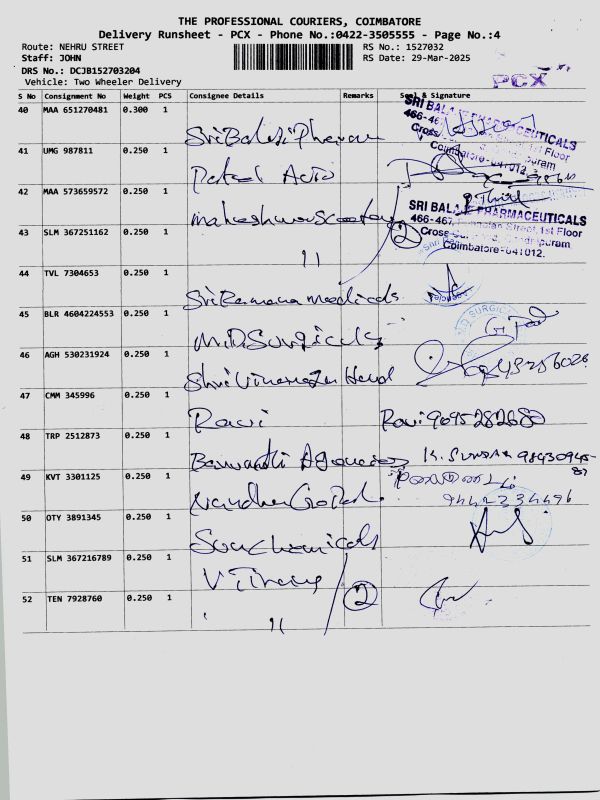 THE PROFESSIONAL COURIERS, COIMBATORE
Delivery Runsheet - PCX - Phone No.:0422-3505555 - Page No.:4
Route: NEHRU STREET RS No.: 1527032
Staff: JOHN RS Date: 29-Mar-2025
DRS No.: DCJB152703204
Vehicle: Two Wheeler Delivery PCX
S No Consignment No Weight PCS Consignee Details Remarks Seal & Signature
40 MAA 651270481 0.300 1 Sri Balaji Pharma
SRI BALAJI PHARMACEUTICALS
1st Floor
Coimbatore - 641012.
41 UMG 987811 0.250 1 Patel Auto
42 MAA 573659572 0.250 1 Maheshwari Scooter
SRI BALAJI PHARMACEUTICALS
466-467, Street, 1st Floor
Cross Gandhipuram
Coimbatore - 641012.
43 SLM 367251162 0.250 1 11 2
44 TVL 7304653 0.250 1 Sri Ramana Medicals
45 BLR 4604224553 0.250 1 M.D Surgicals
46 AGH 530231924 0.250 1 Shri Vinayaga Hend
47 CMM 345996 0.250 1 Ravi Ravi 9695282680
48 TRP 2512873 0.250 1 Agencies K. SUNDAR 98430945-
87
49 KVT 3301125 0.250 1 Nandha
9442234496
50 OTY 3891345 0.250 1 Sun Chemicals
51 SLM 367216789 0.250 1
52 TEN 7928760 0.250 1 11 2